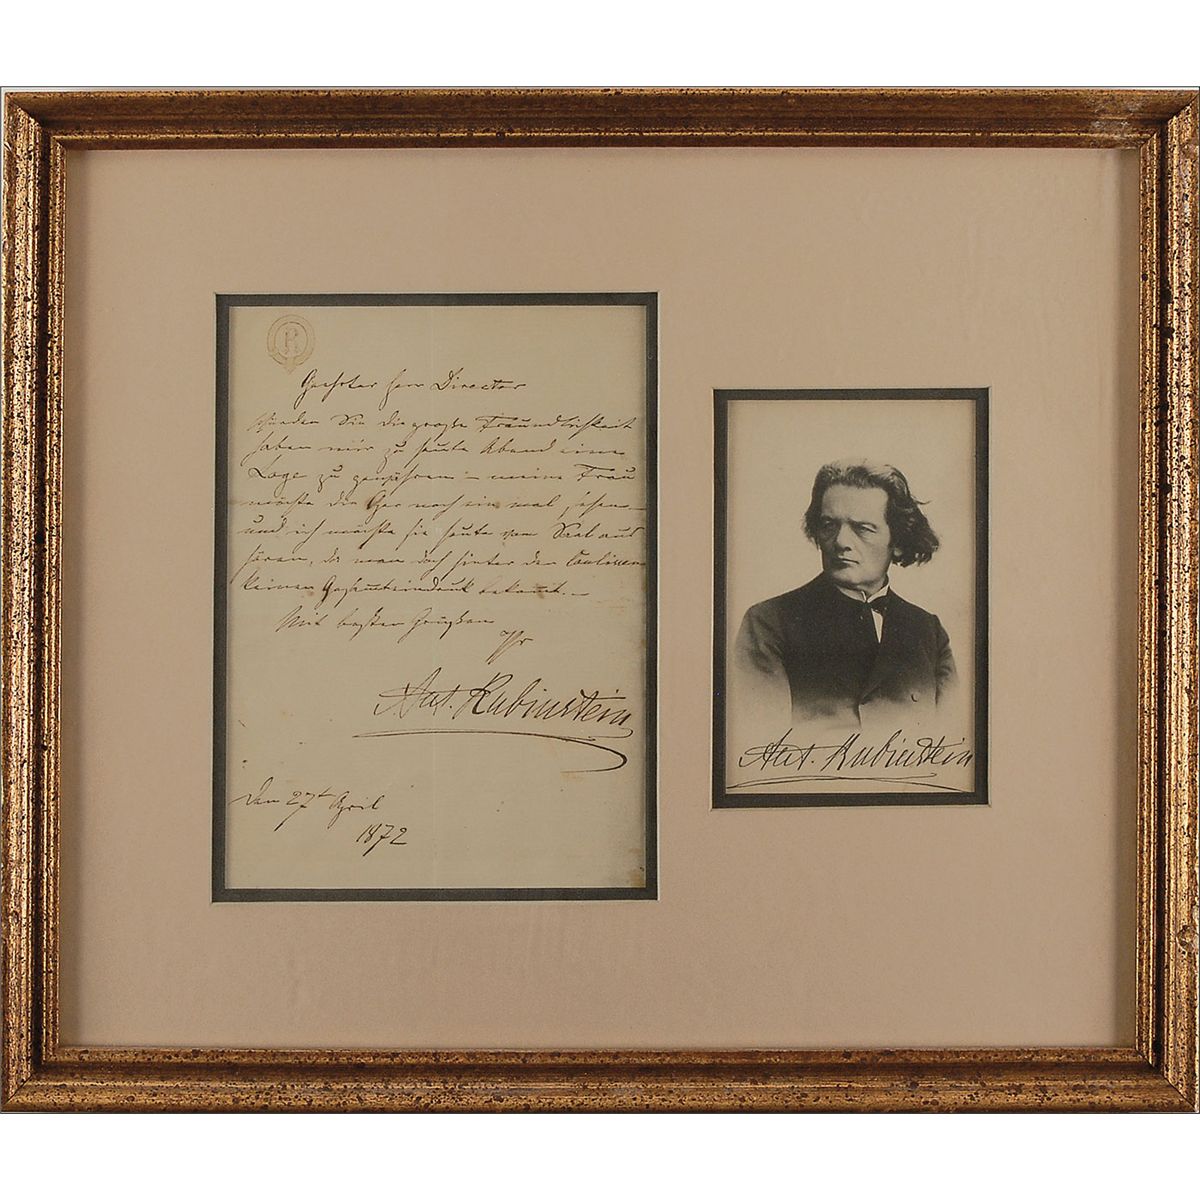 R
Geehrter Herr Director
Würden Sie die große Freundlichkeit
haben mir zu heute Abend eine
Loge zu gewähren – meine Frau
möchte die Oper noch ein mal sehen –
und ich möchte sie heute vom Saal aus
hören, da man doch hinter den Coulissen
keinen Gesammteindruck bekomt. –
Mit besten Grüßen
Ihr
Ant. Rubinstein
Den 27t April
1872
Ant. Rubinstein